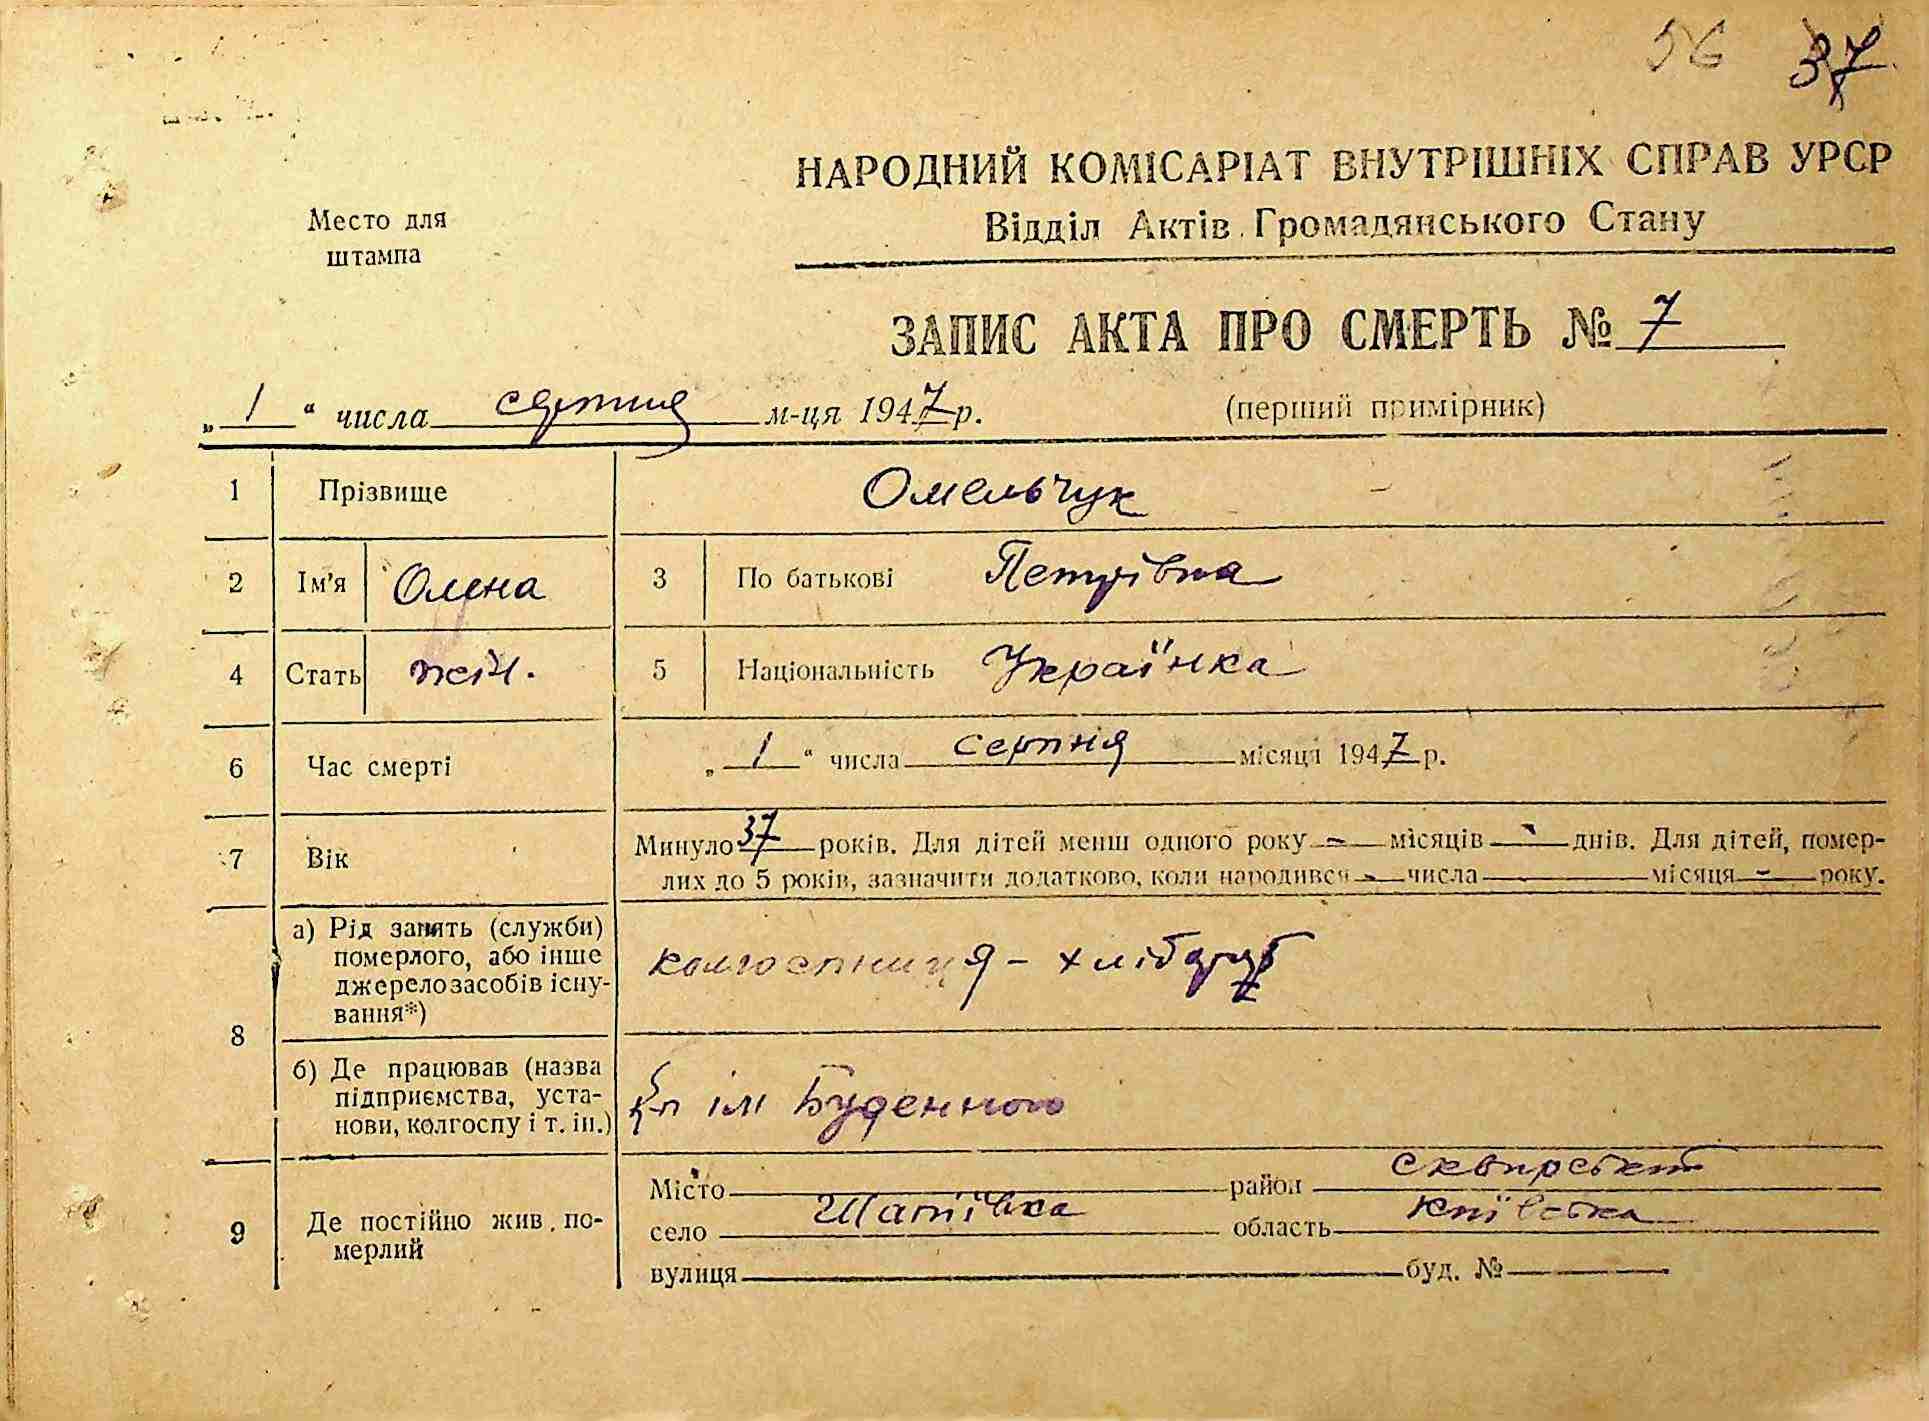 56 37
НАРОДНИЙ КОМІСАРІАТ ВНУТРІШНІХ СПРАВ УРСР
Відділ Актів Громадянського Стану
Место для
штампа
ЗАПИС АКТА ПРО СМЕРТЬ № 7
„1“ числа серпня м-ця 1947 р.
(перший примірник)
1 Прізвище Омельчук
2 Ім'я Олена 3 По батькові Петрівна
4 Стать жін. 5 Національність Українка
6 Час смерті „1“ числа серпня місяця 1947 р.
7 Вік Минуло 37 років. Для дітей менш одного року - місяців - днів. Для дітей, помер-
лих до 5 років, зазначити додатково, коли народився - числа місяця - року.
8 а) Рід занять (служби)
померлого, або інше
джерело засобів існу-
вання*)
колгоспниця - хлібороб
б) Де працював (назва
підприємства, уста-
нови, колгоспу і т. ін.)
ім Буденного
9 Де постійно жив по-
мерлий
Місто район сквирський
село Шапіївка область Київська
вулиця буд. №